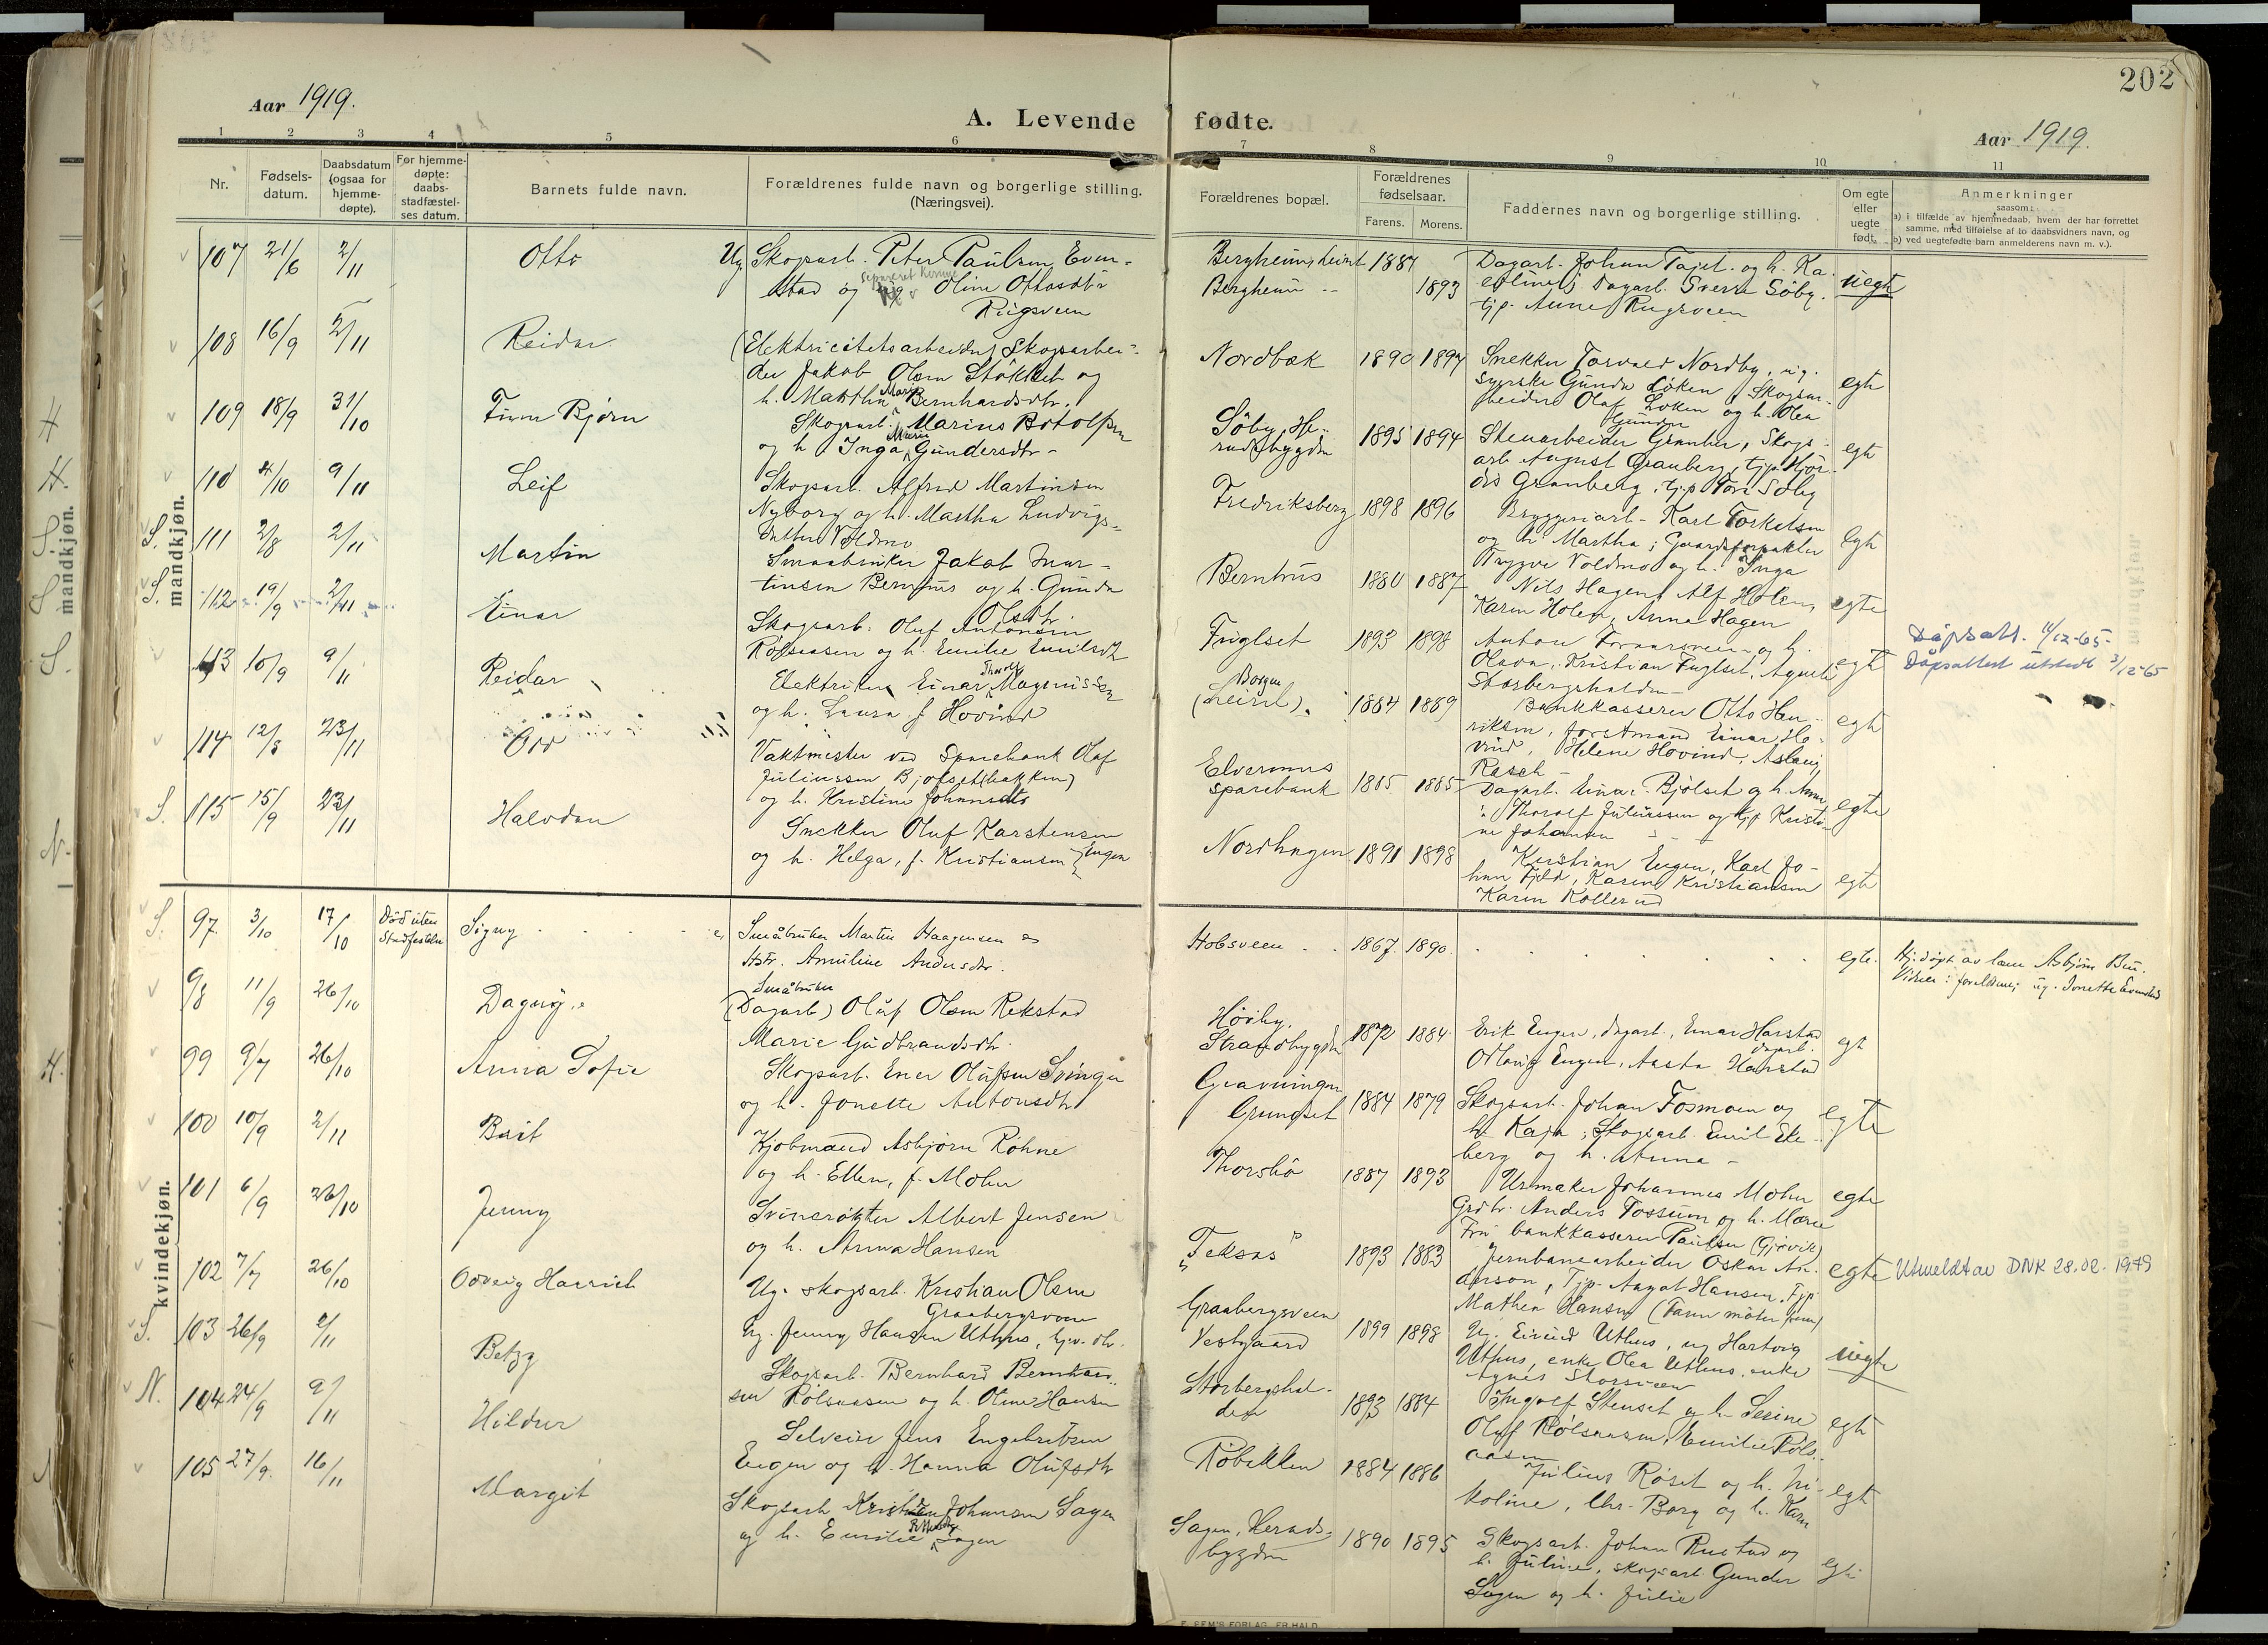 202
Aar 1919.
A. Levende fødte.
Aar 1919.
1 2 3 4 5 6 7 8 9 10 11
Nr.
Fødsels-
datum.
Daabsdatum
(ogsaa for
hjemme-
døpte).
For hjemme-
døpte:
daabs-
stadfæstel-
ses datum.
Barnets fulde navn.
Forældrenes fulde navn og borgerlige stilling.
(Næringsvei).
Forældrenes bopæl.
Forældrenes
fødselsaar.
Farens. Morens.
Faddernes navn og borgerlige stilling.
Om egte
eller
uegte
født.
Anmerkninger
saasom:
a) i tilfælde av hjemmedaab, hvem der har forrettet
samme, med tilføielse af to daabsvidners navn, og
b) ved uegtefødte barn anmelderens navn m. v.).
mandkjøn.
107 21/6 2/11 Otto Ug. Skogsarb. Peter Paulsen Even-
stad og Oline Ottosdtr
Rugsveen
Bergheim 1893
Dagarb. Johan Tajet og h. Ka-
roline; dagarb. Sverre Söby.
tjp. Anne Rugsveen
uegte
108 16/9 2/11 Reidar (Elektricitetsarbeider) Skogsarbei-
der Jakob Olsen Stokket og
h. Martha Marie Bernhardsdtr.
Nordbæk 1890 1897
Snekker Torvald Nordby, ug.
syerske Gunda Løken, Skogsar-
beider Olaf Løken og h. Olea
egte
109 18/9 31/10 Finn Bjørn Skogsarb. Marius Botolfsen
og h. Inga Marie Gundersdtr-
Söby, He-
radsbygden 1895 1894
Stenarbeider Gunder Granber, Skogs-
arb. August Granberg, tjp. Hjör-
dis Granberg, tjp. Tori Söby
egte
110 4/10 9/11 Leif Skogsarb. Alfred Martinsen
Nyborg og h. Martha Ludvigs-
datter Voldmo
Fredriksberg 1898 1896
Bryggeriarb. Karl Torkelsen
og h. Martha; Gaardsforpakter
Trygve Voldmo og h. Inga
egte
S. 111 2/8 2/11 Martin Smaabruker Jakob Mar-
tinsen Bernhus og h. Gunda
Olsdtr
Bernhus 1880 1887
Nils Hagen, Alf Holen,
Karen Holen, Anna Hagen
egte
S. 112 19/9 2/11 Einar Skogsarb. Oluf Antonsen
Rølsaasen og h. Emilie Emilsdtr
Fuglset 1893 1898
Olava, Kristian Fuglset, Agnete
Storbergshalden
egte
Dåpsatt. 11/12-65-
Dåpsattest utstedt 3/12-65
113 10/9 9/11 Reidar Elektriker Einar Thorolf Magnussen
og h. Laura f. Hovind
Borgen
(Leiret). 1884 1889
Bankkasserer Otto Hen-
riksen, forstmand Einar Ho-
vind, Helene Hovind, Aslaug
Rasch
egte
114 12/8 23/11 Odd Vaktmester ved Sparebank Olaf
Juliussen Bjølset (bakken)
og h. Kristine Johansdtr
Elverums
sparebank 1885 1885
Dagarb. Einar Bjölset og h. Anna,
Thorolf Juliussen og tjp. Kristi-
ne Johansen
egte
S. 115 15/9 23/11 Halvdan Snekker Oluf Karstensen
og h. Helga, f. Kristiansen } Engen
Nordhagen 1891 1898
Kristian Engen, Karl Jo-
han Fjeld, Karen Kristiansen
Karen Kollerud
egte
kvindekjøn.
S. 97. 3/10 17/10 Död uten
Stadfestelse Signy
Småbruker Martin Haagensen og
Hstr. Anuline Andersdtr.
Hobsveen 1867. 1890.
egte.
Hj. døpt av læn. Asbjörn
Vidner: foreldrene; ug. Jonette Evenstad
98 11/9 26/10 Dagny Småbruker
(Dagarb) Oluf Olsen Rekstad
Marie Gudbrandsdtr.
Höiby,
Strandbygden 1872 1884
Erik Engen, dagarb., Einar Harstad
dagarb.
Odlaug Engen, Aasta Harstad
egt
99 9/7 26/10 Anna Sofie Skogsarb. Ener Olufsen Svingen
og h. Jonette Antonsdtr
Gravningen
Grundset 1884 1879
Skogsarb. Johan Fosmoen og
h. Kaja; Skogsarb. Emil Eke-
berg og h. Anna -
egte
100 10/9 2/11 Berit Kjöbmand Asbjørn Röhne
og h. Ellen, f. Mohn
Thorsbö 1887 1893
Urmaker Johannes Mohn
Grdbr. Anders Fossum og h. Marie
Fru bankkasserer Paulsen (Gjövik)
egte
101 6/9 26/10 Jenny Svinerøkter Albert Jensen
og h. Anna Hansen
"Teksås" 1893 1883
Jernbanearbeider Oskar An-
derson, Tjp. Aagot Hansen, Tjp
Mathea Hansen
egte Utmeldt av DNK 28.02.1949
102 7/7 26/10 Oddveig Harriet Ug. skogsarb. Kristian Olsen
Graabergsveen
Ug. Jenny Hansen Uthus, tj. v. dtr.
Graabergsveen
Vestgaard 1899 1898
Ug. Eivind Uthus, ug Hartvig
Uthus, enke Olea Uthus, enke
Agnes Storsveen
uegte
S. 103 26/9 2/11 Betzy Skogsarb. Bernhard Bernhard-
sen Rölsaasen og h. Oline Hansen
Storbergshal-
den 1893 1884
Ingolf Stenset og h. Serine
Oluf Rölsaasen, Emilie Röls-
aasen
egte
N. 104 24/9 9/11 Hildur Selveier Jens Engebretsen
Engen og h. Hanna Olufsdtr
Röbakken 1884 1886
Julius Røset og h. Ni-
koline, Chr. Borg og h. Karen
egte
105 27/9. 16/11 Margit Skogsarb. Kristian Johansen Sagen
og h. Emilie Sagen
Sagen, Herads-
bygden 1890 1895
Skogsarb. Johan Rustad og
h. Juline, skogsarb Gunder
Sagen og h. Julie
egte